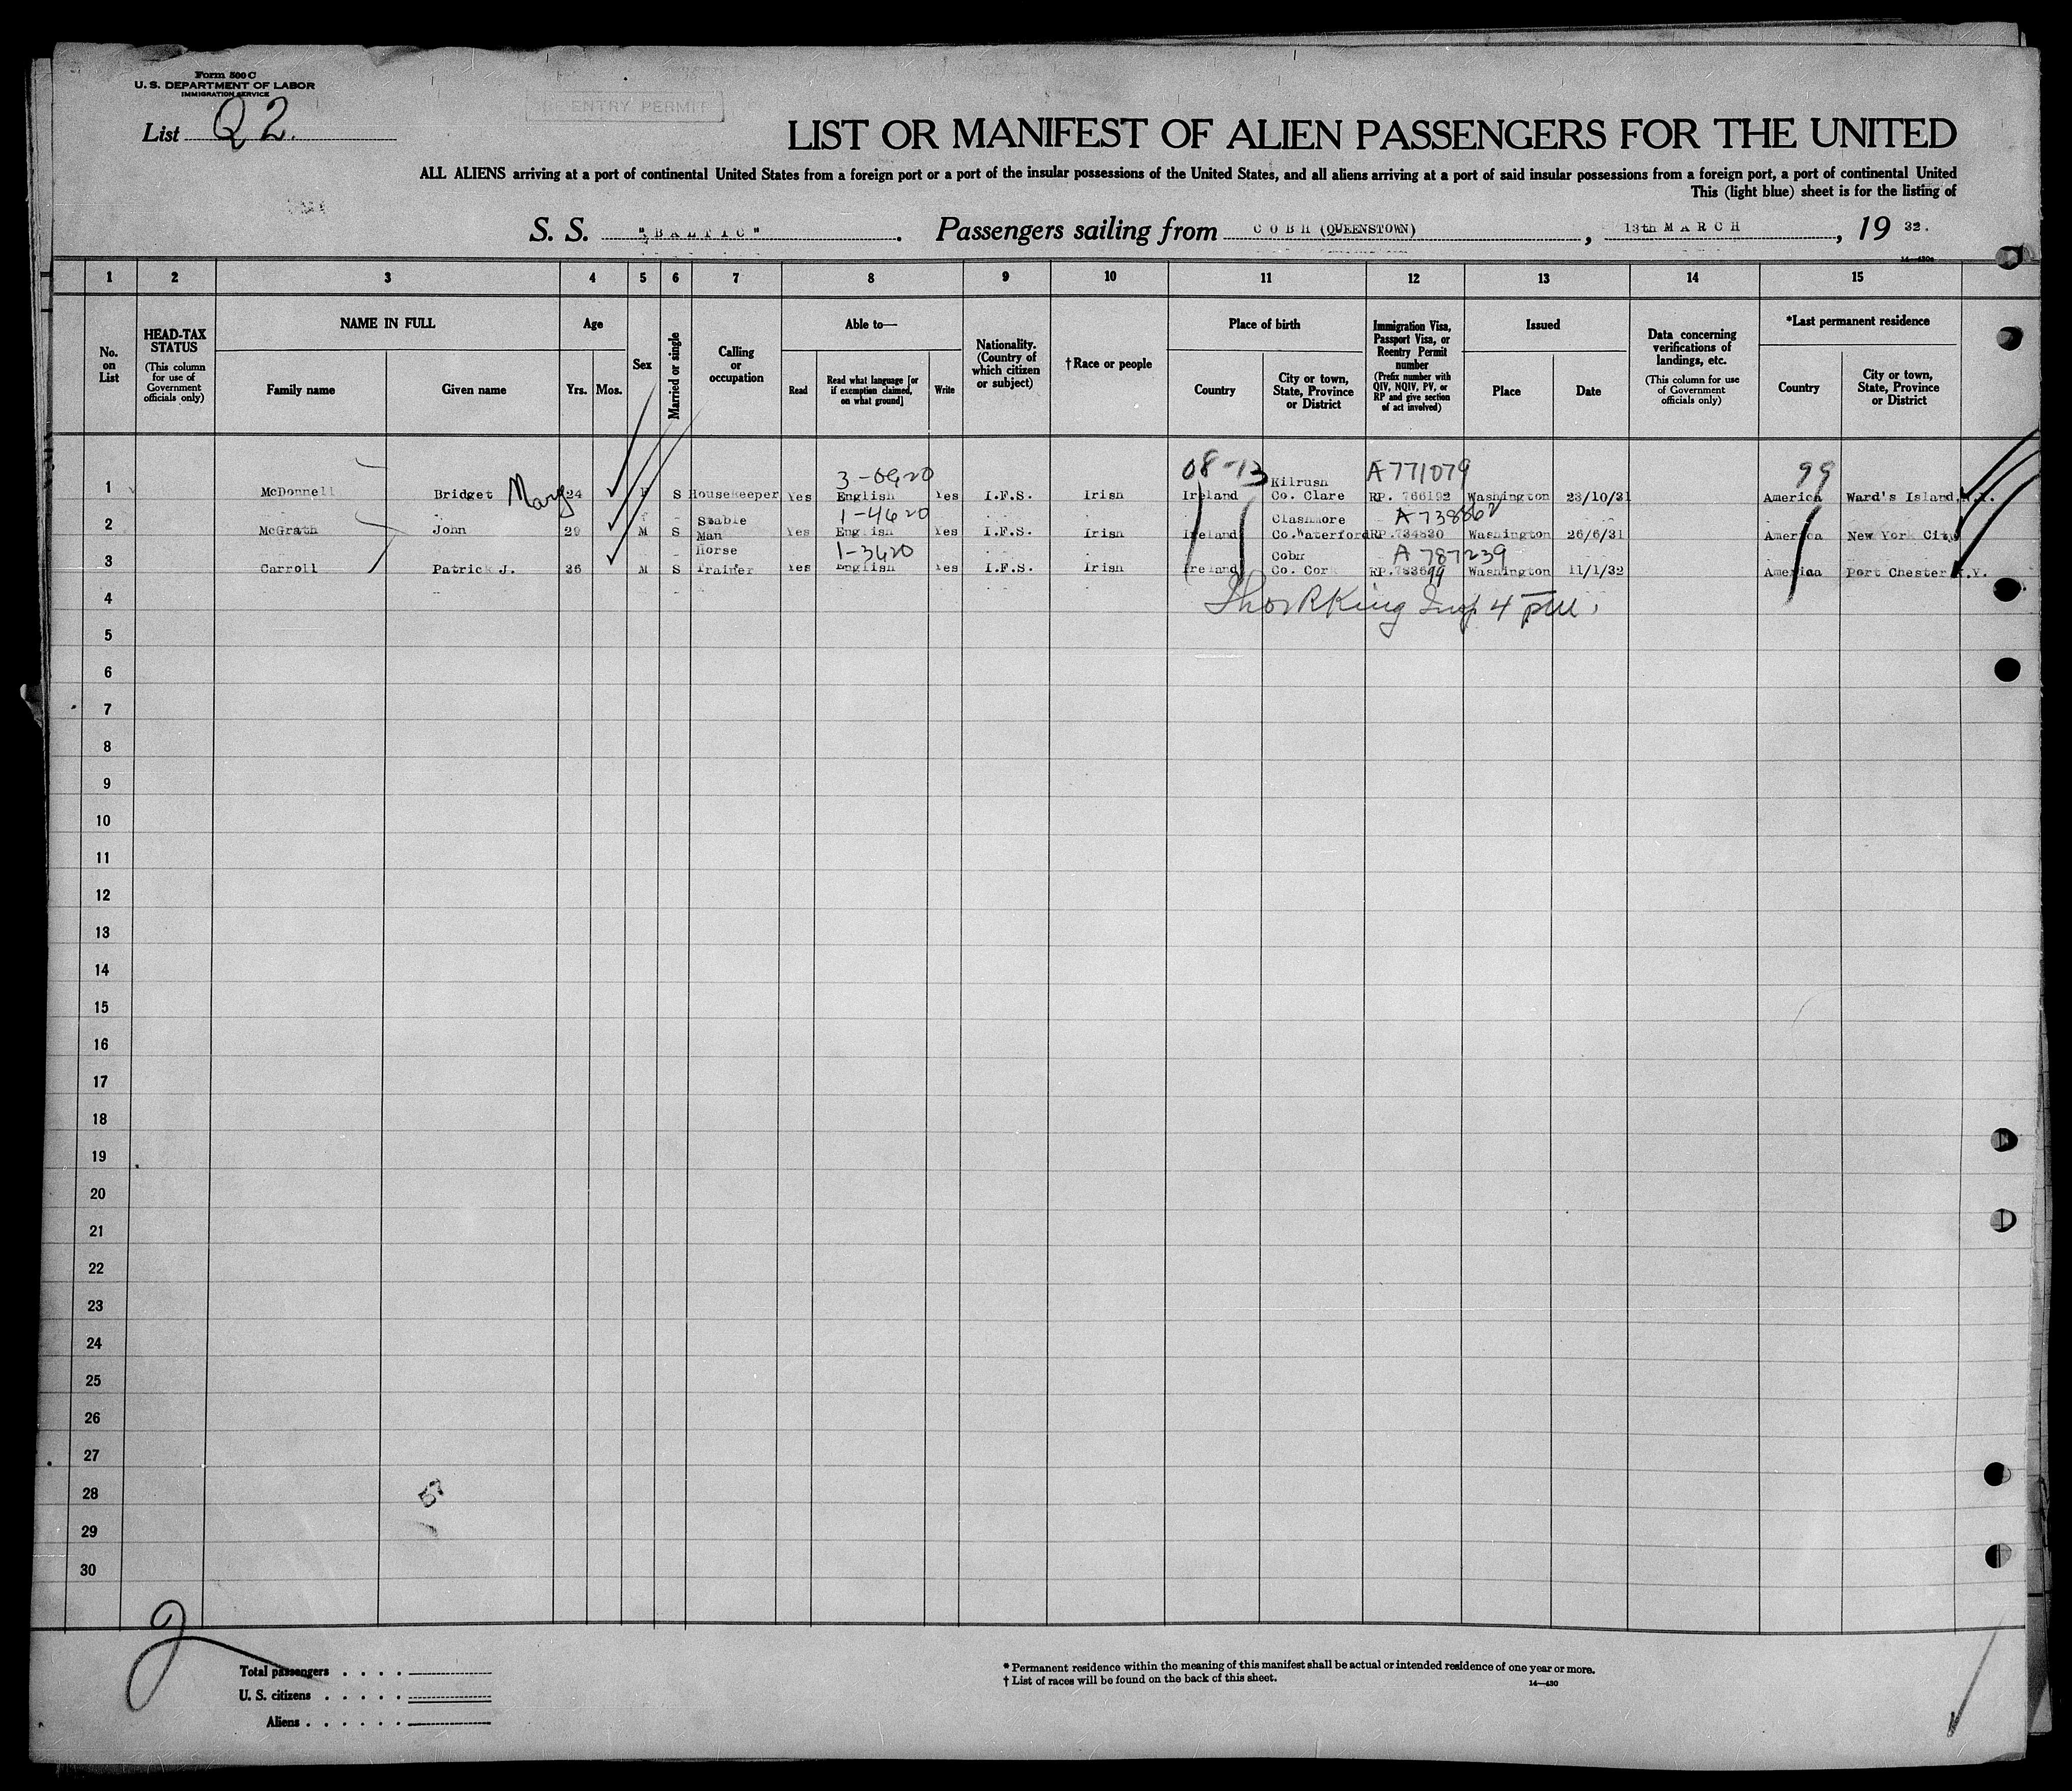 Form 500 C
U. S. DEPARTMENT OF LABOR
IMMIGRATION SERVICE
ENTRY PERMIT
List Q 2.
LIST OR MANIFEST OF ALIEN PASSENGERS FOR THE UNITED
ALL ALIENS arriving at a port of continental United States from a foreign port or a port of the insular possessions of the United States, and all aliens arriving at a port of said insular possessions from a foreign port, a port of continental United
This (light blue) sheet is for the listing of
S. S. "BALTIC". Passengers sailing from COBH (QUEENSTOWN), 13th MARCH, 19 32.
1 2 3 4 5 6 7 8 9 10 11 12 13 14 15
No. on List
HEAD-TAX STATUS
(This column for use of Government officials only)
NAME IN FULL
Family name Given name
Age
Yrs. Mos.
Sex
Married or single
Calling or occupation
Able to—
Read Read what language [or if exemption claimed, on what ground] Write
Nationality. (Country of which citizen or subject)
†Race or people
Place of birth
Country City or town, State, Province or District
Immigration Visa, Passport Visa, or Reentry Permit number
(Prefix number with QIV, NQIV, PV, or RP and give section of act involved)
Issued
Place Date
Data concerning verifications of landings, etc.
(This column for use of Government officials only)
*Last permanent residence
Country City or town, State, Province or District
3-0920 08-13 Kilrush A771079 99
1 McDonnell Bridget Mary 24 F S Housekeeper Yes English Yes I.F.S. Irish Ireland Co. Clare RP. 766192 Washington 23/10/31 America Ward's Island, N.Y.
Stable 1-4620 Clashmore
2 McGrath John 29 M S Man Yes English Yes I.F.S. Irish Ireland Co.Waterford RP.734830 Washington 26/6/31 America New York City
Horse 1-3620 Cobh A 787239
3 Carroll Patrick J. 36 M S Trainer Yes English Yes I.F.S. Irish Ireland Co. Cork Washington 11/1/32 America Port Chester N.Y.
4
5
6
7
8
9
10
11
12
13
14
15
16
17
18
19
20
21
22
23
24
25
26
27
28
29
30
2
Total passengers
U. S. citizens
Aliens
* Permanent residence within the meaning of this manifest shall be actual or intended residence of one year or more.
† List of races will be found on the back of this sheet.
14—430